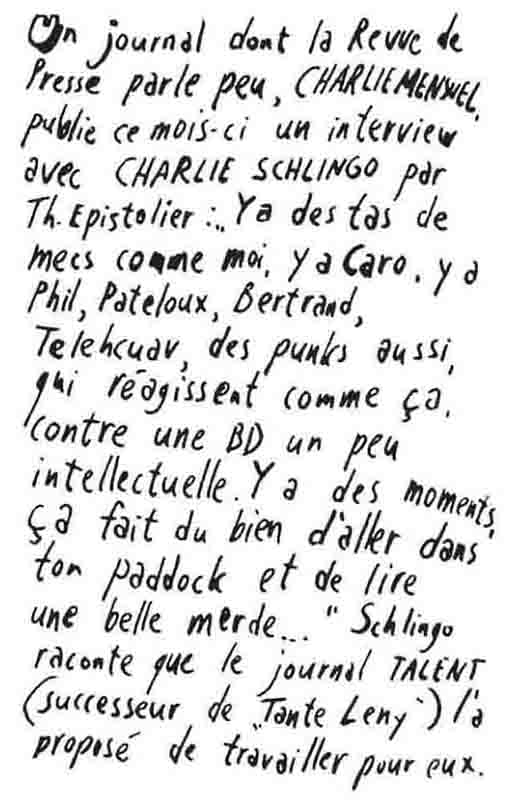 Un journal dont la Revue de
Presse parle peu, CHARLIE MENSUEL,
publie ce mois-ci un interview
avec CHARLIE SCHLINGO par
Th. Epistolier : „Ya des tas de
mecs comme moi, y a Caro, y a
Phil, Pateloux, Bertrand,
Telehcuav, des punks aussi,
qui réagissent comme ça,
contre une BD un peu
intellectuelle. Y a des moments,
ça fait du bien d'aller dans
ton paddock et de lire
une belle merde... " Schlingo
raconte que le journal TALENT
(successeur de „Tante Leny") l'a
proposé de travailler pour eux.